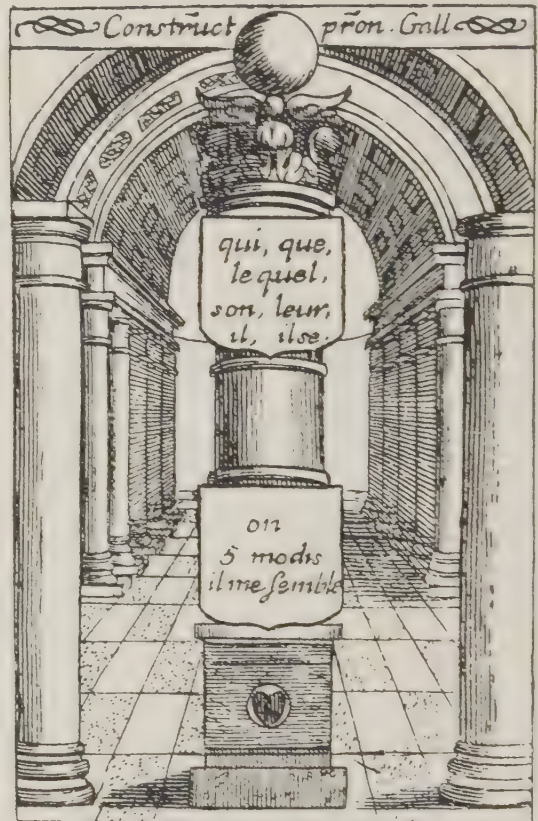 Construc̃t pr̃on. Gall
qui, que,
lequel,
son, leur,
il, ilse.
on
5 modis
il me ſemble